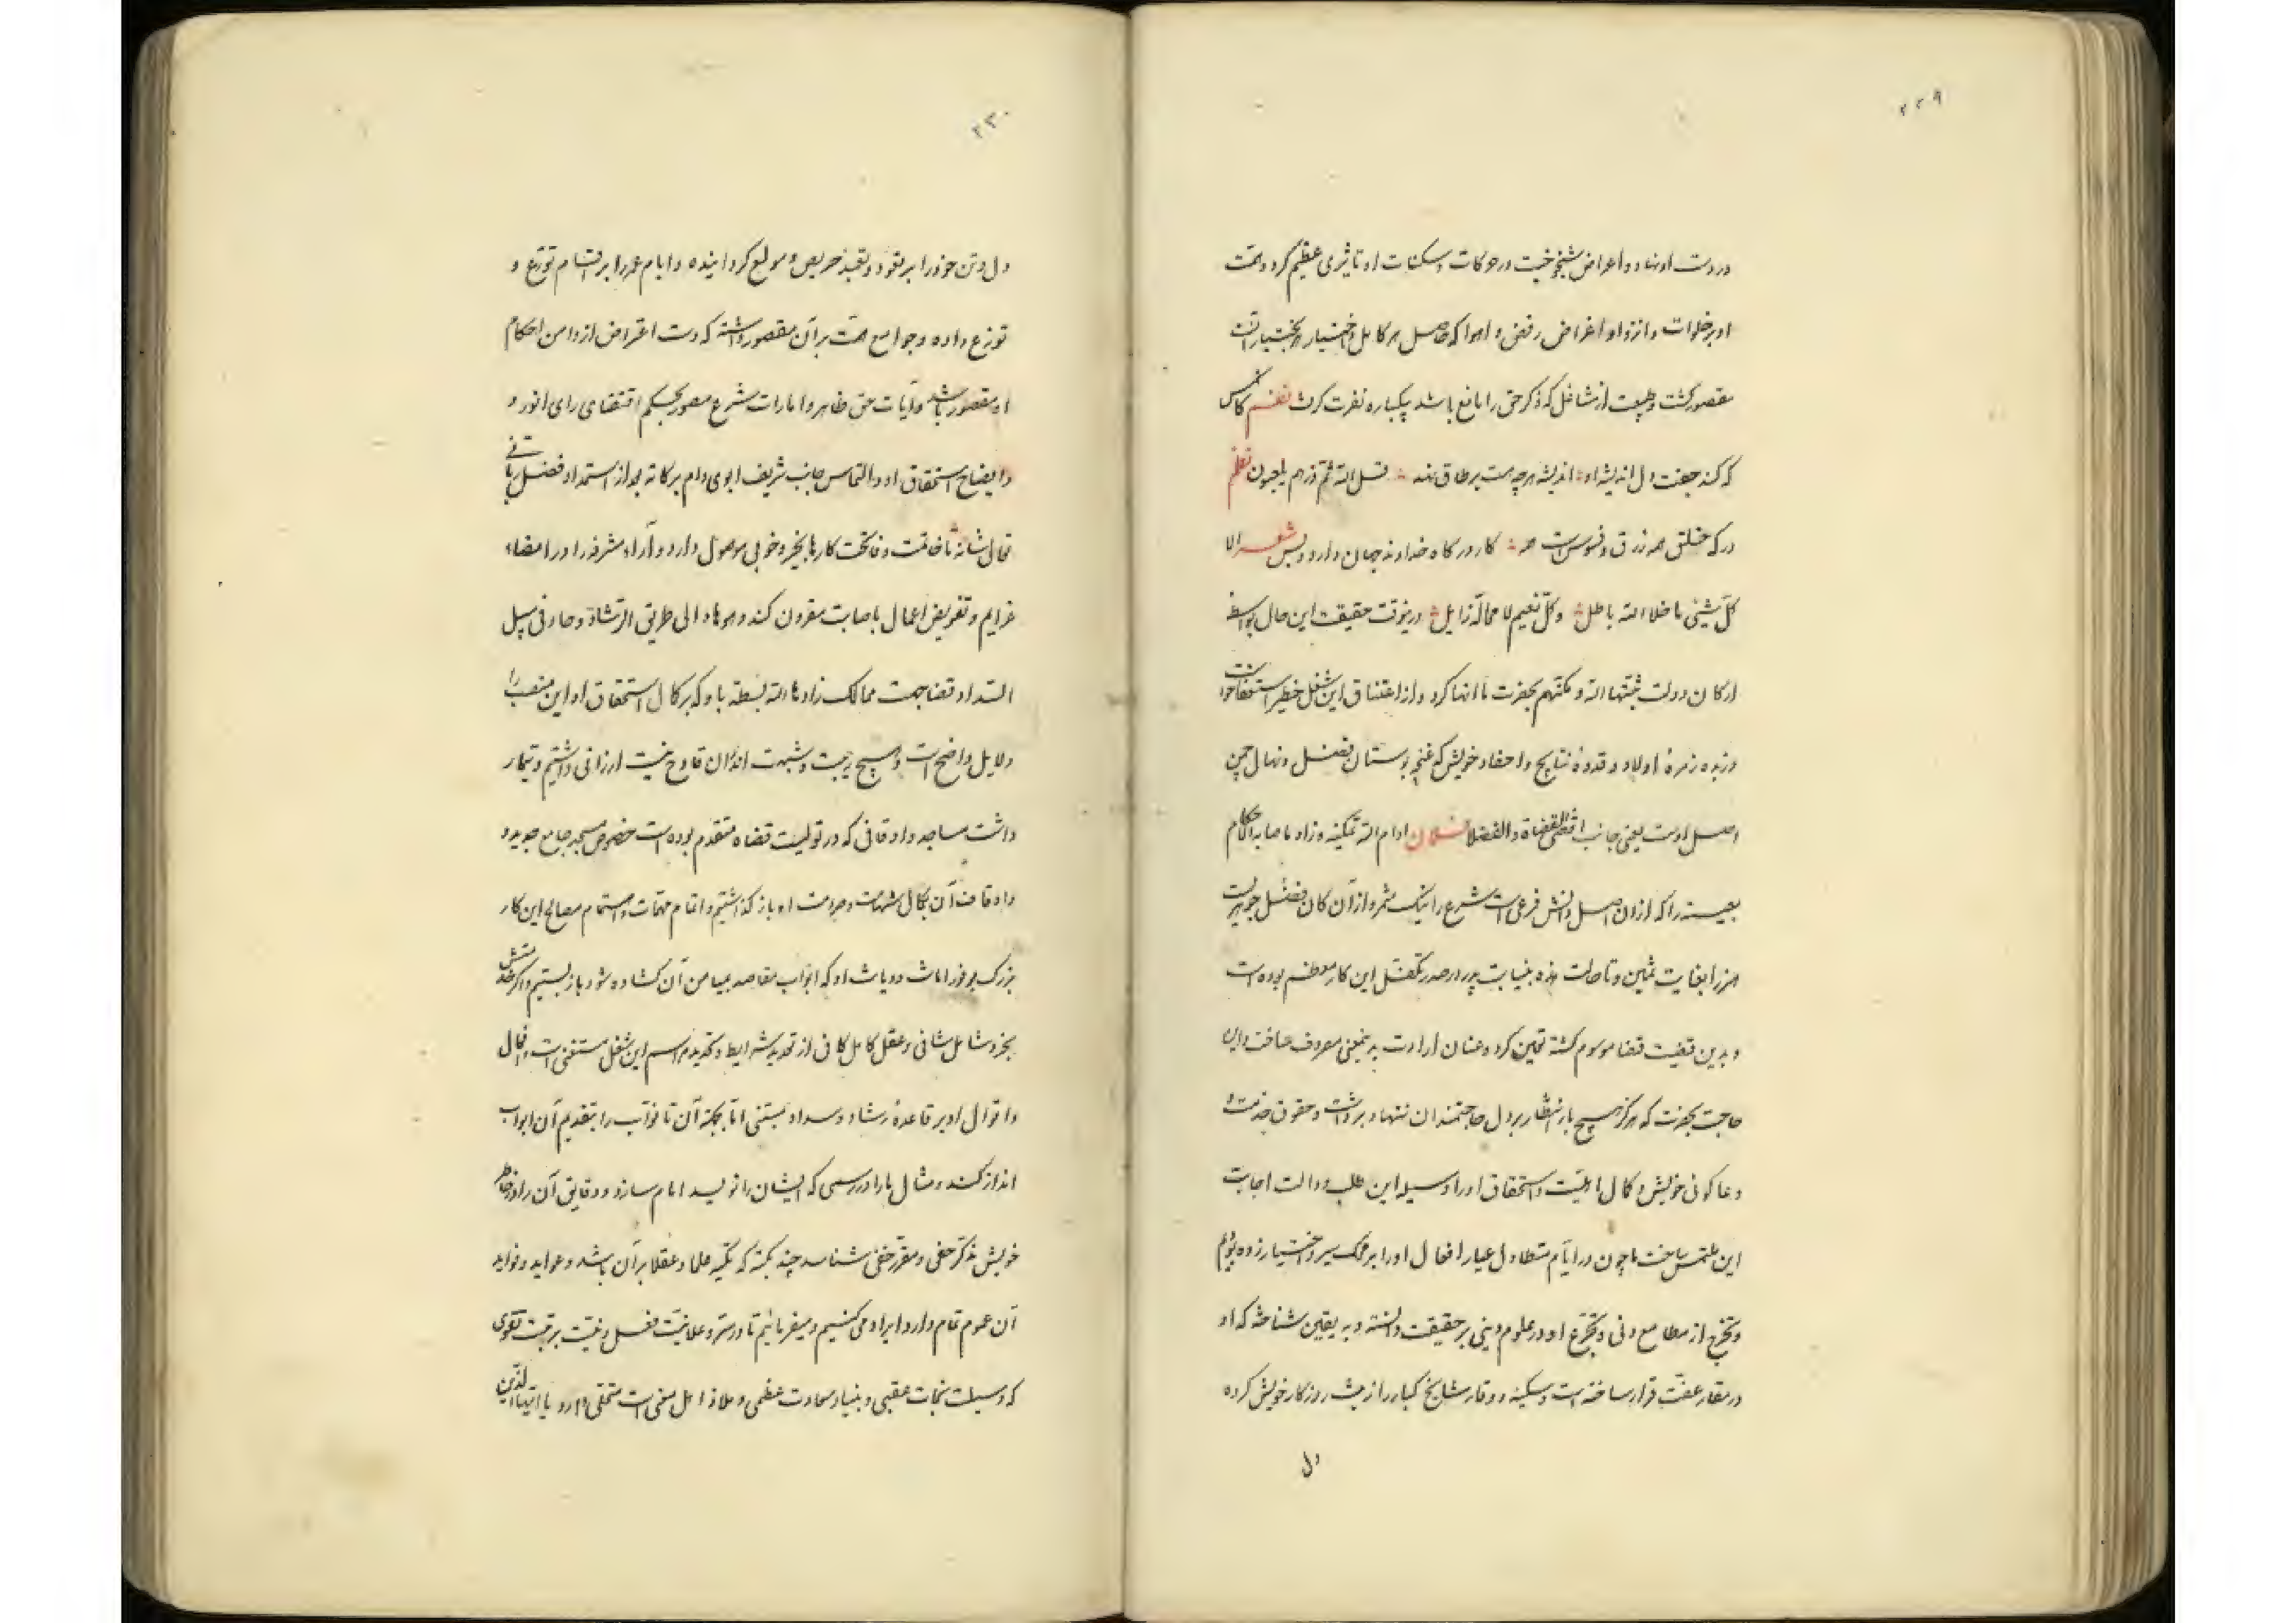 ۲۲۹
در دست او نهاد و اعراض شیخوخیت در حرکات و سکنات او تاثیری عظیم کرد و همت
او بر خلوات و انزوا و اغراض رفض و اهوا که حاصل هر کامل و اختیار هر بختیار است
مقصور گشت و طبیعت از مشاغل که ذکر حق را مانع باشد یکباره نفرت گرفت نظم کانکس
که کند جفت دل اندیشه او اندیشه هرچه هست بر طاق نهد قل الله ثم ذرهم یلعبون نظم
درگه خلق همه زرق و فسوس است همه کار درگاه خداوند جهان دارد و بس شعر الا
کل شیئی ما خلا الله باطل وکل نعیم لا محالة زایل درینوقت حقیقت این حال بواسطه
ارکان دولت ثبتها الله و مکنهم بحضرت ما انها کرد و از اعتناق این شغل خطیر استعفا خواست
وزبده زمرهٔ اولاد و قدوهٔ نتایج و احفاد خویش که غنچه بوستان فضل و نهال چمن
اصل اوست یعنی جانب اقضی القضاة والفضلا فلان ادام الله تمکینه و زاد باصابه الاحکام
را که از ان اصل دانش فرعی است شرع را نیک مثمر و از آن کان فضل جوهریست
هنر را بغایت ثمین و تا حالت هذه بنیابت پدر در صدر تکفل این کار معظم بوده است
و بدین قضیت قضا موسوم گشته تعیین کرد و عنان ارادت بدینمعنی معروف ساخت و این
حاجت بحضرت که هرگز هیچ بار انتظار بر دل حاجتمندان ننهاد برداشت و حقوق خدمت و
دعا گوئی خویش و کمال اهلیت و استحقاق او را وسیله این طلب و دالت اجابت
این ملتمس ساخت ما چون در ایام متطاول عیار افعال او را بر محک سیر و اختیار زده بودیم
و تحرج از مطامع دنی و تبحر او در علوم دینی بر حقیقت دانسته و به یقین شناخته که او
در مقار عفت قرار ساخته است و سکینه و وقار مشایخ کبار را از پیش روزگار خویش کرده
دل
۲۳۰
دل و تن خود را بر تقود و تعبد حریص و مولع گردانیده و ایام عمر را بر اقسام تورع و
توزع داده و جوامع همت بر آن مقصور داشته که دست اعتراض از دامن احکام
او مقصور باشد و آیات حق ظاهر و امارات شرع منصور بحکم اقتضای رای انور و
و ایضاح استحقاق او و التماس جانب شریف ابوی دام برکاته بعد از استمداد فضل ربانی
تعالی شانه تا خاتمت و فاتحت کارها بخیر و خوبی موصول دارد و آراء مشرفه را در امضاء
عزایم و تفویض اعمال باصابت مقرون کند وهو هاد الی طریق الرشاد و حاد فی سبیل
السداد قضا جهت ممالک زادها الله بسطة باو که بر کمال استحقاق او این منصب را
دلایل واضح است و هیچ ریبت و شبهت اندران قادح نیست ارزانی داشتیم و تیمار
داشت مساجد و اوقافی که در تولیت قضاه متقدم بوده است خصوص مسجد جامع جدید و
و اوقاف آن بکمال شهامت و صرامت او باز گذاشتیم و اتمام مهمات و استتمام مصالح این کار
بزرگ بوفور امانت و دیانت او که ابواب مقاصد بمیامن آن گشاده شود باز بستیم و اگر چند منش
بخرد شامل شافی و عقل کامل کافی از تحدید شرایط و تجدید مراسم این شغل مستغنی است و افعال
و اقوال او بر قاعدهٔ رشاد و سداد مبتنی اما بجهت آن تا نواب را بتقدیم آن ابواب
انذار کند و مثال ما را در رسمی که ایشان را نویسد امام سازد و دقایق آن را در خاطر
خویش مذکر حفی و مقرر خفی شناسد چند نکته که تکیه علما و عقلا بر آن باشد و عواید و فواید
آن عموم تمام دارد ایراد می کنیم و میفرمائیم تا در سر و علانیت فعل و نیت بر تبت تقوی
که وسیلت نجات عقبی و بنیاد سعادت عظمی و ملاذ اهل معنی است متحلی دارد یا ایها الذین